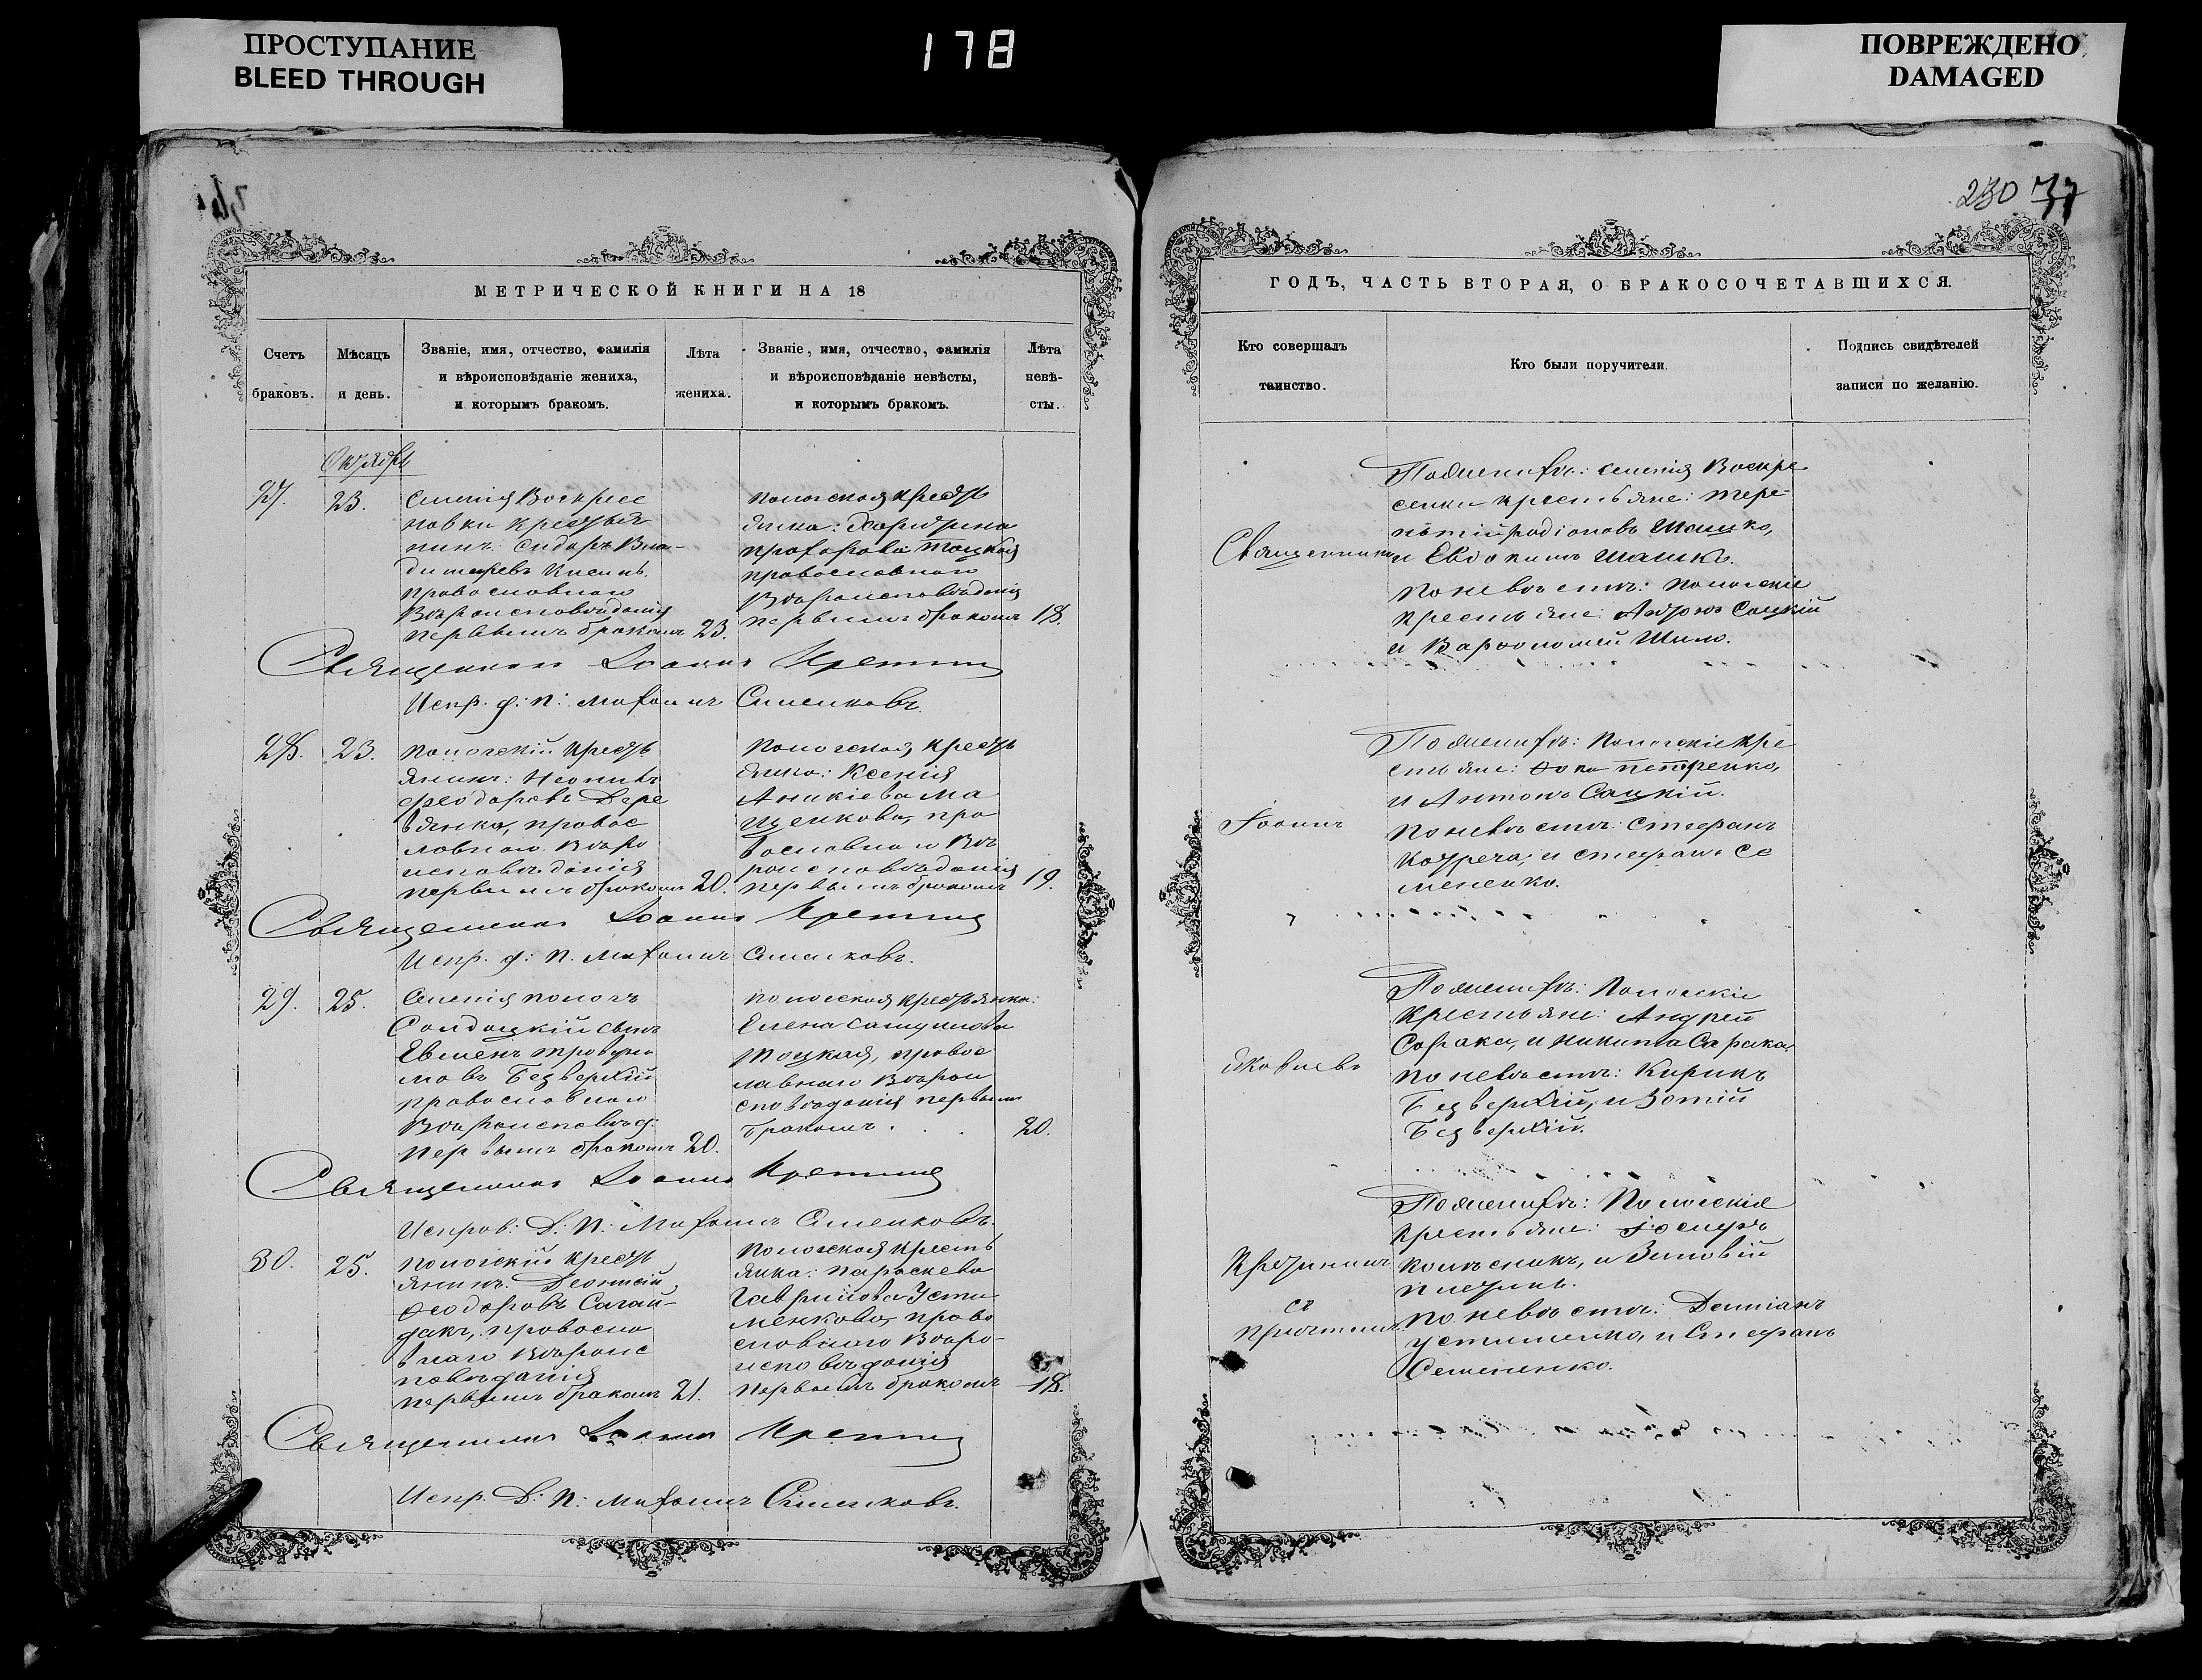 ПРОСТУПАНИЕ
BLEED THROUGH
178
ПОВРЕЖДЕНО
DAMAGED
МЕТРИЧЕСКОЙ КНИГИ НА 18
Счетъ браковъ.
Мѣсяцъ и день.
Званіе, имя, отчество, фамилія
и вѣроисповѣданіе жениха,
и которымъ бракомъ.
Лѣта жениха.
Званіе, имя, отчество, фамилія
и вѣроисповѣданіе невѣсты,
и которымъ бракомъ.
Лѣта невѣ-
сты.
Октябрь
27.
23.
Селенія Воскресе
новки крестья
нинъ: Сидоръ Вла-
димировъ
православнаго
Вѣроисповѣданія
первымъ бракомъ 23.
Пологская кресть
янка:
Прохорова Тоцкая
православнаго
Вѣроисповѣданія
первымъ бракомъ 18.
Священникъ Іоаннъ
Испр. д: п: Симсиковъ
28.
23.
Пологскій кресть
янинъ:
Феодоровъ Дере
вянко, правос
лавнаго Вѣро
исповѣданія
первымъ бракомъ 20.
Пологская кресть
янка: Ксенія
Аникіева Ма
щенкова, пра
вославнаго Вѣ
роисповѣданія
первымъ бракомъ 19.
Священникъ Іоаннъ
Испр. д: п.
29.
25.
Селенія Пологъ
Солдатскій сынъ
Евменъ Трофи
мовъ Безверхій
православнаго
Вѣроисповѣд.
первымъ бракомъ 20.
Пологская крестьянка:
Елена Самуилова
Тоцкая, правос
лавнаго Вѣрои
сповѣданія первымъ
бракомъ. 20.
Священникъ Іоаннъ
Исправ: Д: П:
30.
25.
Пологскій кресть
янинъ: Леонтій
Феодоровъ Сагай-
дакъ, правосла
внаго Вѣроис
повѣданія
первымъ бракомъ 21.
Пологская кресть
янка: Параскева
Гаврилова Усти
менкова, право
славнаго Вѣро-
исповѣданія
первымъ бракомъ 18.
Священникъ Іоаннъ
Испр. Д: П:
230 37
ГОДЪ, ЧАСТЬ ВТОРАЯ, О БРАКОСОЧЕТАВШИХСЯ.
Кто совершалъ таинство.
Кто были поручители.
Подпись свидѣтелей
записи по желанію.
Священникъ
Іоаннъ
Яковлевъ
съ
причтомъ
По женихѣ: селенія Воскре
сенки крестьяне: Тере
нтій Родіоновъ Шашко,
и Евдокимъ Шашко.
По невѣстѣ: Пологскіе
крестьяне: Сацкій
и Варѳоломей Шило.
По женихѣ: Пологскіе кре
стьяне: Ѳока Петренко,
и Антонъ Сацкій.
По невѣстѣ: Стефанъ
и Стефанъ Се
мененко.
По женихѣ: Пологскіе
крестьяне: Андрей
Сорака, и Никита Сарака.
По невѣстѣ: Кирикъ
Безверхій, и Зотій
Безверхій.
По женихѣ: Пологскіе
крестьяне: Іосифъ
и Зиновій
По невѣстѣ: Даміанъ
Устименко, и Стефанъ
Семененко.